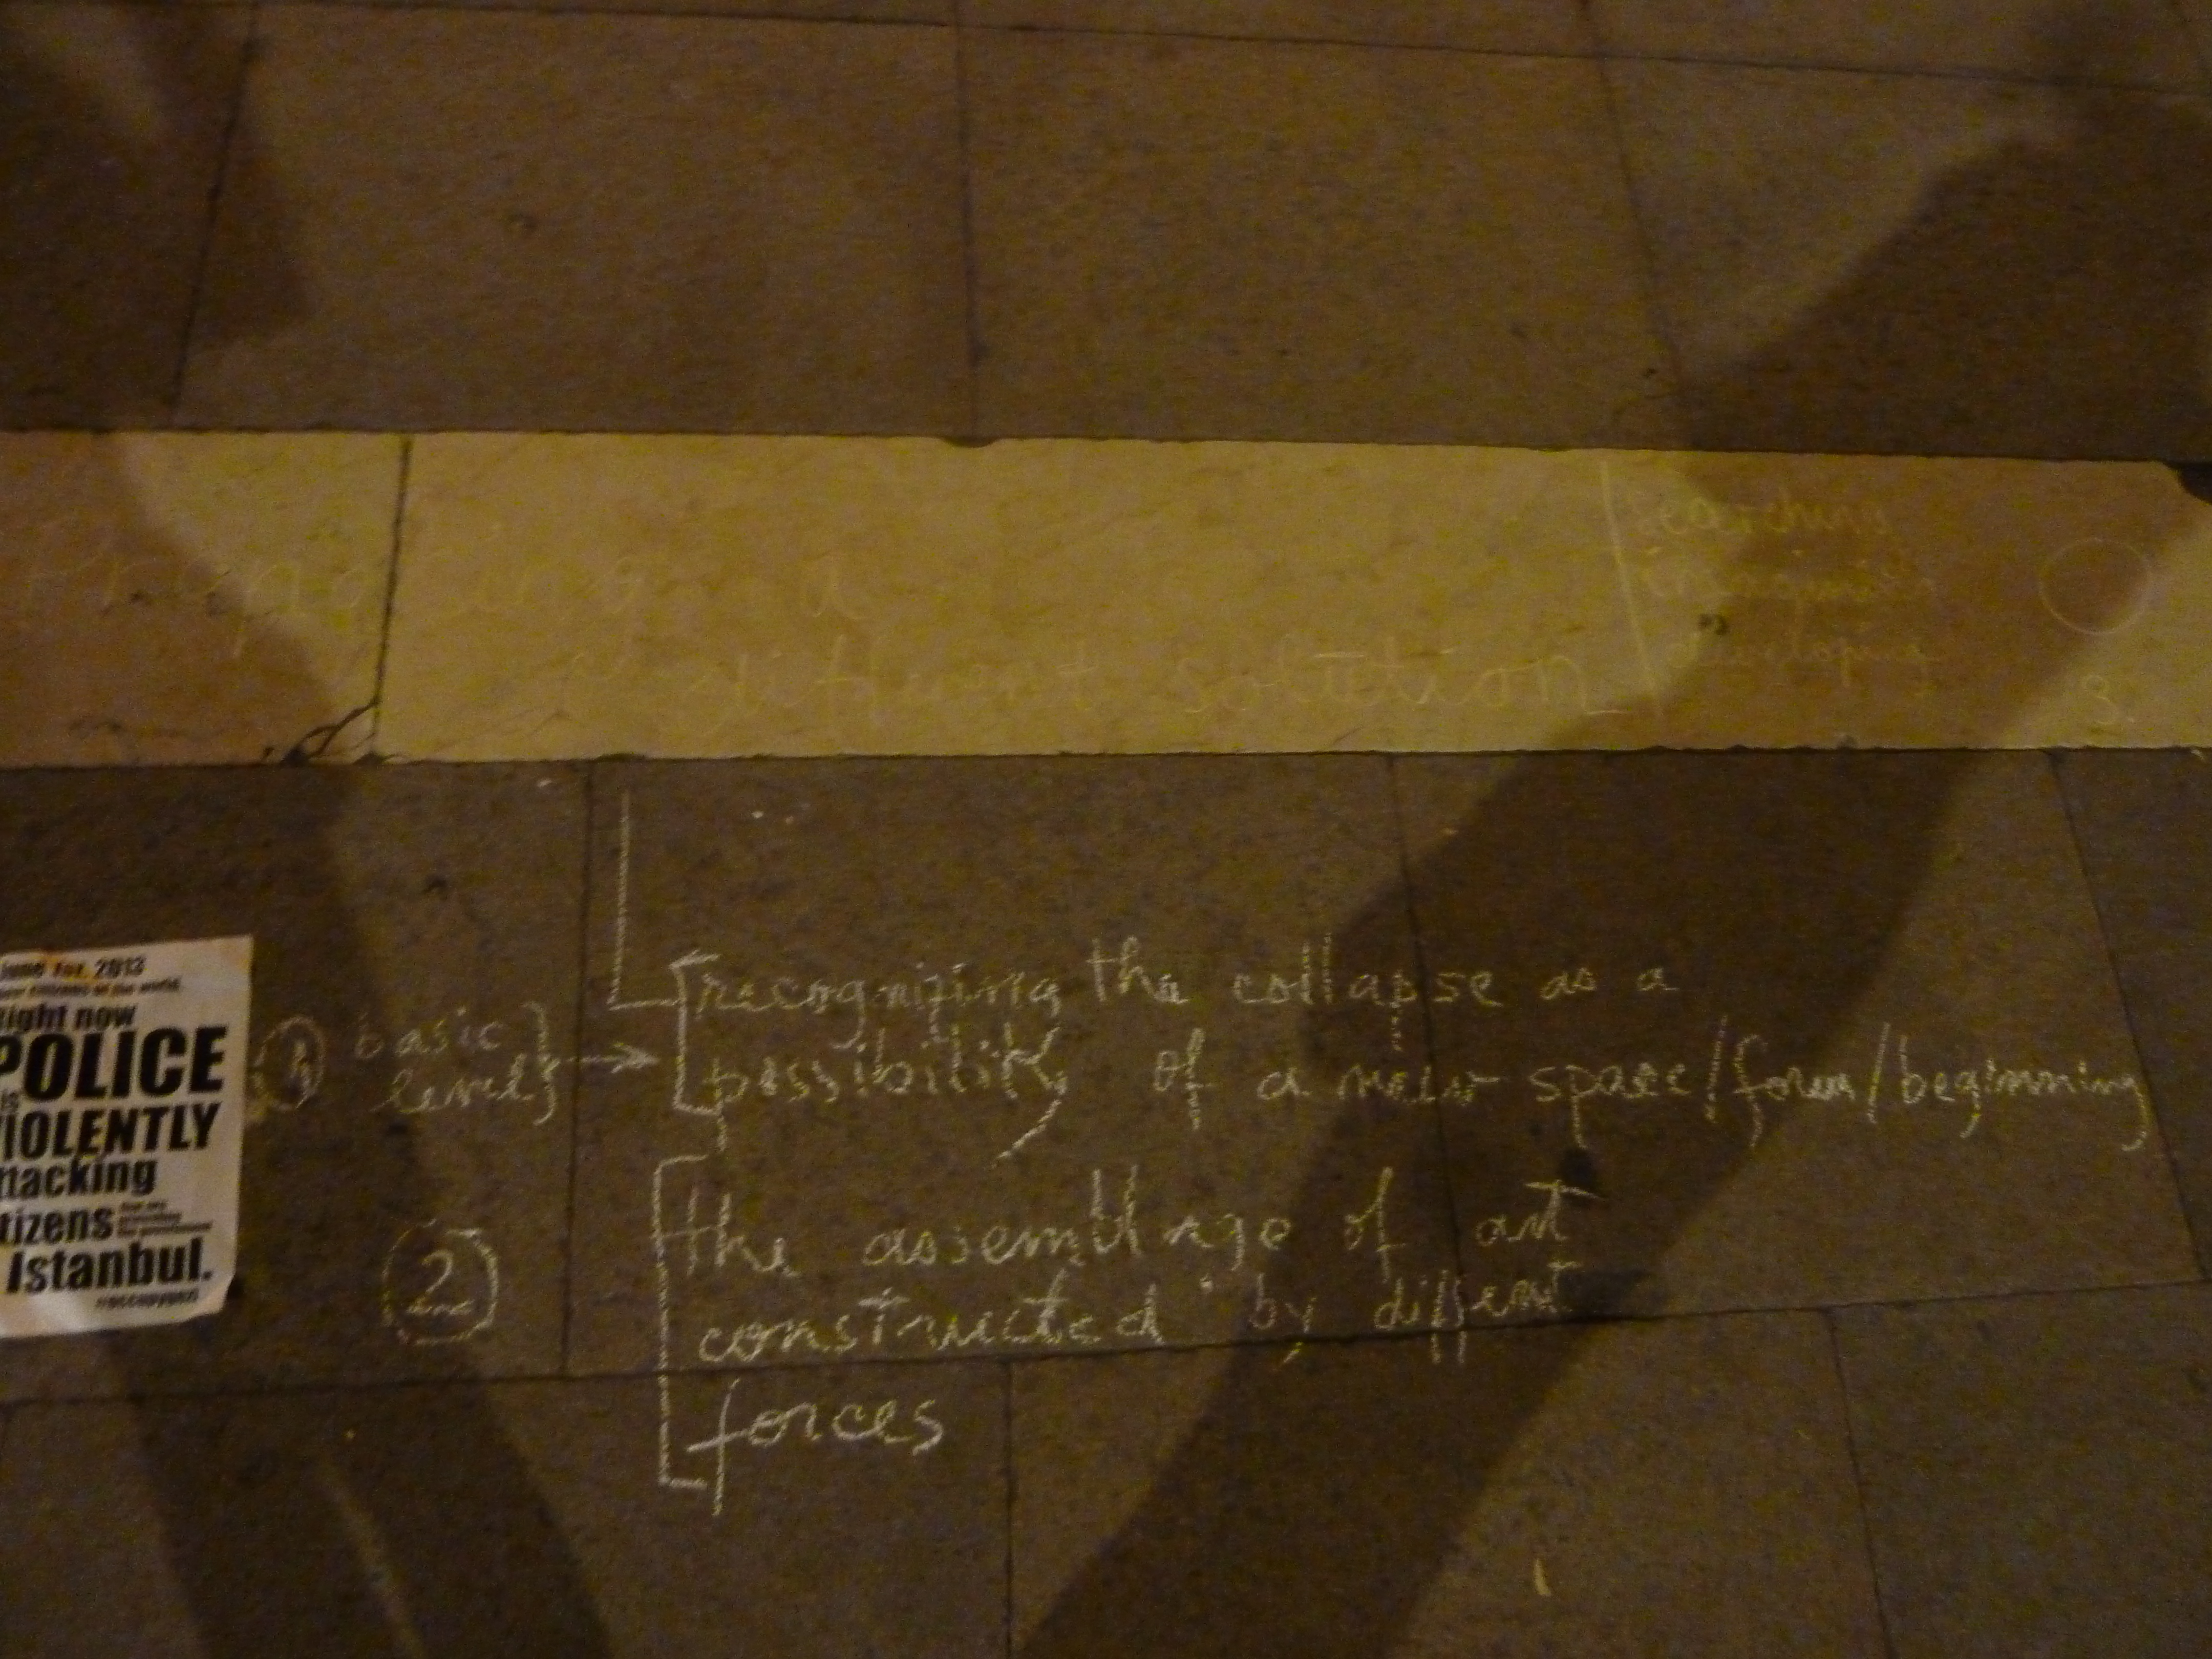 different solution
searching
developing
3.
June 1st, 2013
right now
POLICE
is
VIOLENTLY
attacking
Istanbul.
#occupygezi
1 basic
level
recognizing the collapse as a
possibility of a new space/form/beginning
2
the assemblage of art
constructed by diffent
forces